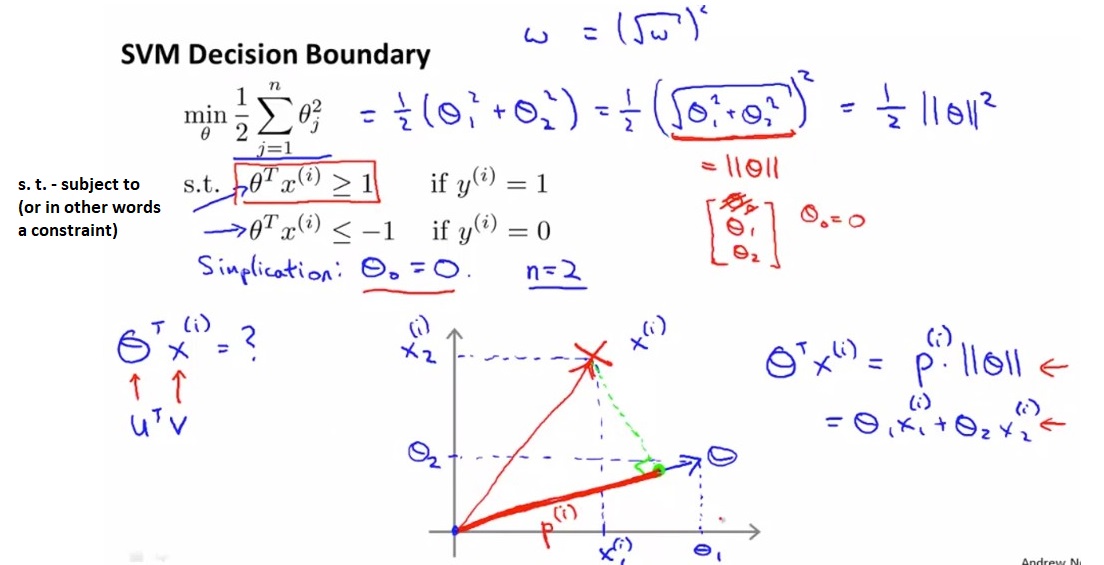 ω = (√ω)²
SVM Decision Boundary
min θ 1/2 ∑ j=1 n θj² = 1/2 (Θ₁² + Θ₂²) = 1/2 (√Θ₁² + Θ₂²)² = 1/2 ||Θ||²
= ||Θ||
s. t. - subject to
(or in other words
a constraint)
s.t. θᵀx⁽ⁱ⁾ ≥ 1 if y⁽ⁱ⁾ = 1
→θᵀx⁽ⁱ⁾ ≤ −1 if y⁽ⁱ⁾ = 0
[Θ₀ Θ₁ Θ₂] Θ₀=0
Simplication: Θ₀ = 0. n=2
Θᵀx⁽ⁱ⁾ = ?
↑ ↑
uᵀv
x₂⁽ⁱ⁾
x⁽ⁱ⁾
Θ₂
Θ
p⁽ⁱ⁾
x₁⁽ⁱ⁾
Θ₁
Θᵀx⁽ⁱ⁾ = p⁽ⁱ⁾·||Θ|| ←
= Θ₁x₁⁽ⁱ⁾ + Θ₂x₂⁽ⁱ⁾ ←
Andrew